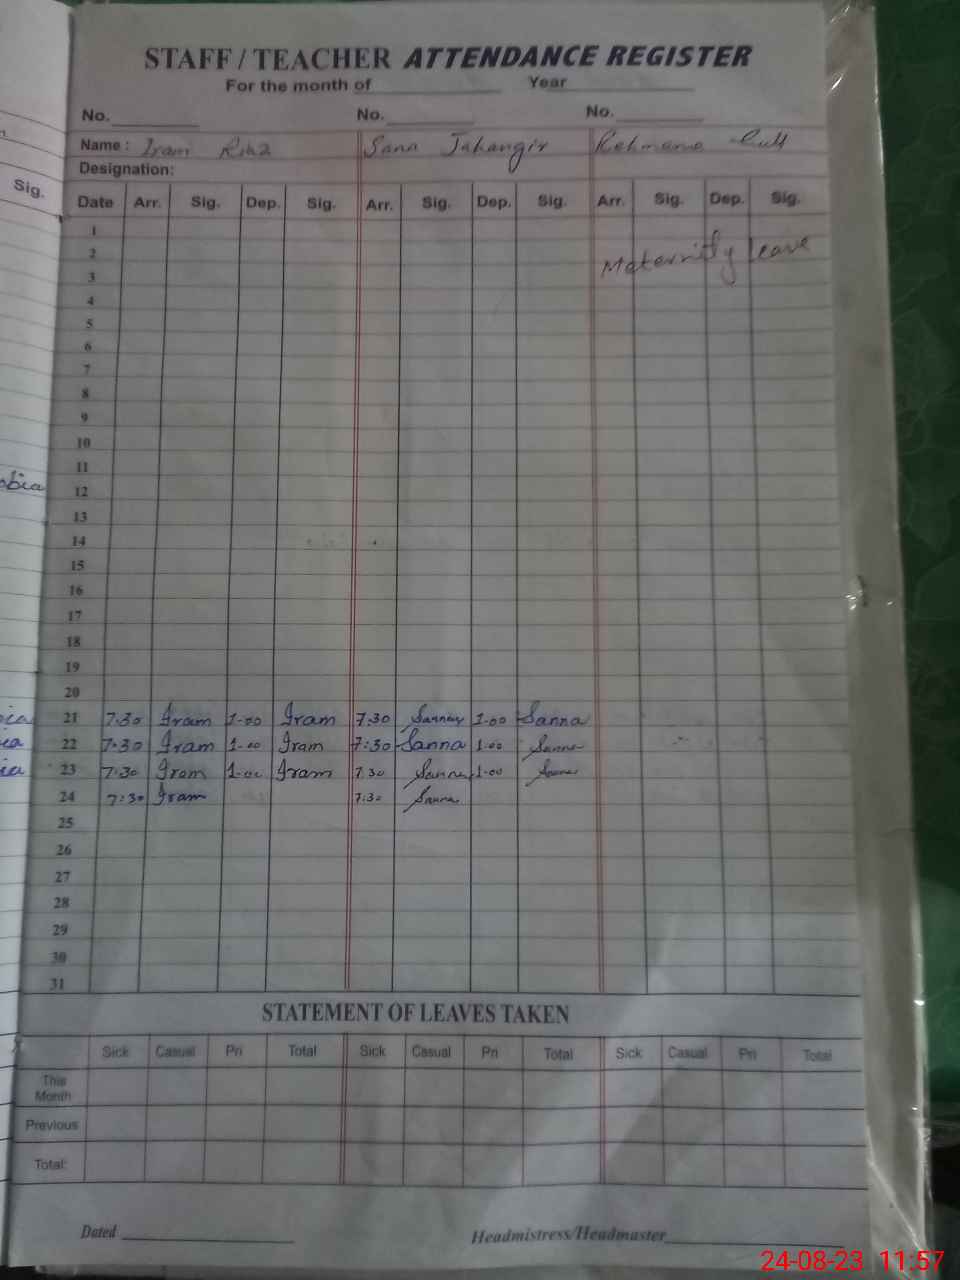 STAFF / TEACHER ATTENDANCE REGISTER
For the month of Year
No. No. No.
Name : Iram Sana Jahangir
Designation:
Sig.
Date Arr. Sig. Dep. Sig. Arr. Sig. Dep. Sig. Arr. Sig. Dep. Sig.
1
2 Maternity leave
3
4
5
6
7
8
9
10
11
12
13
14
15
16
17
18
19
20
21 7:30 Iram 1-00 Iram 7:30 1-00 Sanna
22 7:30 Iram 1-00 Iram 7:30 Sanna 1-00 Sanna
23 7:30 Iram 1-00 Iram 7:30 Sanna 1-00
24 7:30 Iram 7:30 Sanna
25
26
27
28
29
30
31
STATEMENT OF LEAVES TAKEN
Sick Casual Pri Total Sick Casual Pri Total Sick Casual Pri Total
This
Month
Previous
Total:
Dated Headmistress/Headmaster
24-08-23 11:57